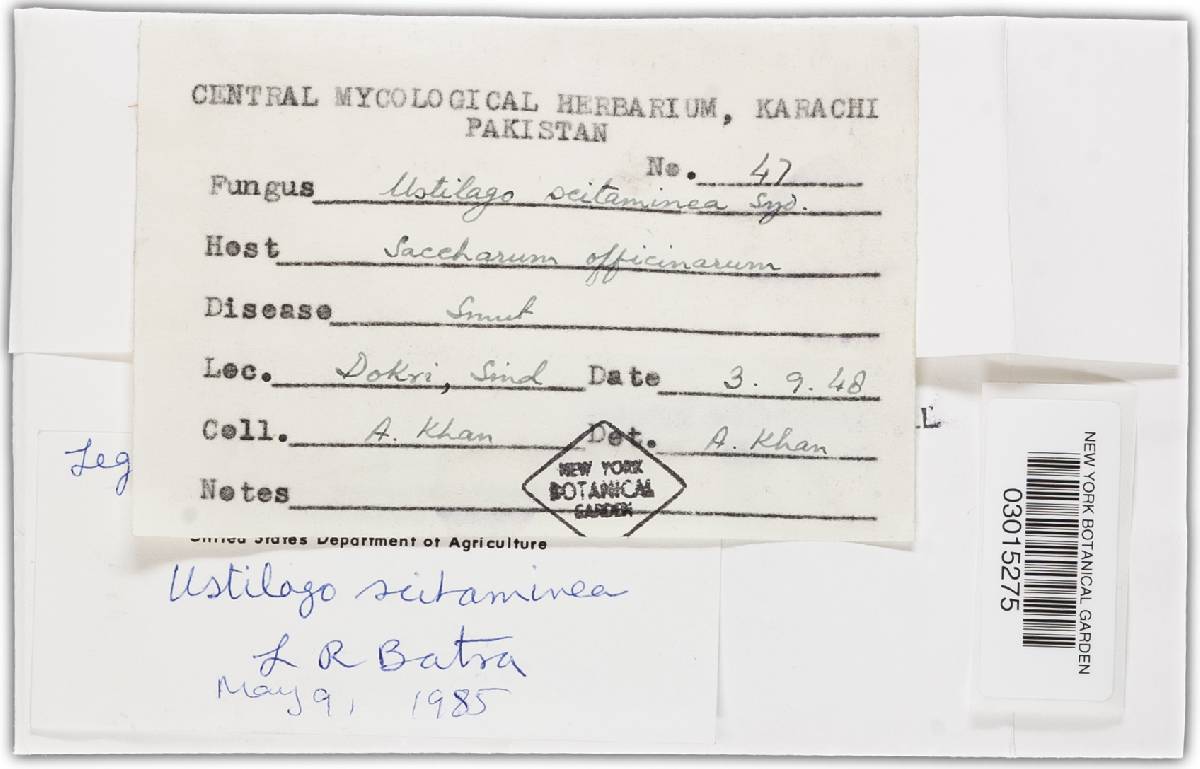 CENTRAL MYCOLOGICAL HERBARIUM, KARACHI
PAKISTAN
No. 47
Fungus Ustilago scitaminea Syd.
Host Saccharum officinarum
Disease Smut
Loc. Dokri, Sind Date 3. 9. 48
Coll. A. Khan Det. A. Khan
Notes
NEW YORK
BOTANICAL
GARDEN
Leg
United States Department of Agriculture
Ustilago scitaminea
L R Batra
May 9, 1985
NEW YORK BOTANICAL GARDEN
03015275